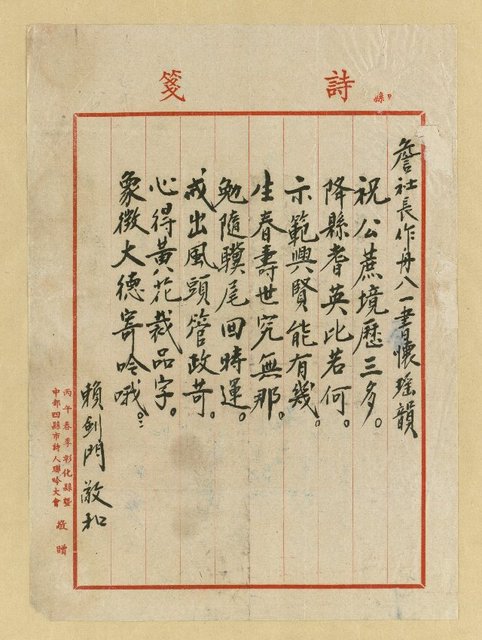 詩箋
詹社長作舟八一書懷瑤韻
祝公蔗境歷三多。
降縣耆英比若何。
示範興賢能有幾。
生春壽世究無那。
勉隨驥尾回時運。
戒出風頭管政苛。
心得黃花栽品字。
象徵大德寄吟哦。
賴劍門 敬和
丙午春季彰化縣暨
中部四縣市詩人聯吟大會 敬贈